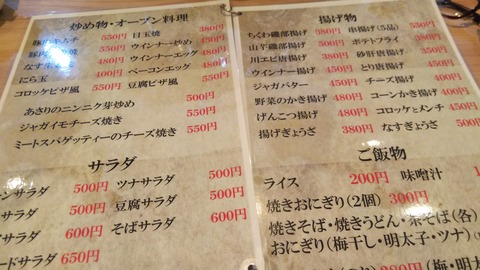 炒め物・オーブン料理
豚肉キムチ 550円 目玉焼 380円
550円 ウインナー炒め 450円
なす 480円 ウインナーエッグ 480円
にら玉 400円 ベーコンエッグ 480円
コロッケピザ風 550円 豆腐ピザ風 550円
あさりのニンニク芽炒め 500円
ジャガイモチーズ焼き 550円
ミートスパゲッティーのチーズ焼き 550円
サラダ
サラダ 500円 ツナサラダ 500円
サラダ 500円 豆腐サラダ 500円
サラダ 600円 そばサラダ 600円
ードサラダ 650円
揚げ物
ちくわ磯部揚げ 380円 串揚げ(5品) 550円
山芋磯部揚げ 500円 ポテトフライ 380円
川エビ唐揚げ 380円 砂肝唐揚げ 550円
ウインナー揚げ 450円 とり唐揚げ 550円
ジャガバター 450円 チーズ揚げ 400円
野菜のかき揚げ 480円 コーンかき揚げ 400円
げんこつ揚げ 480円 コロッケとメンチ 450円
揚げぎょうさ 380円 なすぎょうざ 500円
ご飯物
ライス 200円 味噌汁
焼きおにぎり(2個) 300円
焼きそば・焼きうどん・茶そば(各)
おにぎり(梅干し・明太子・ツナ)